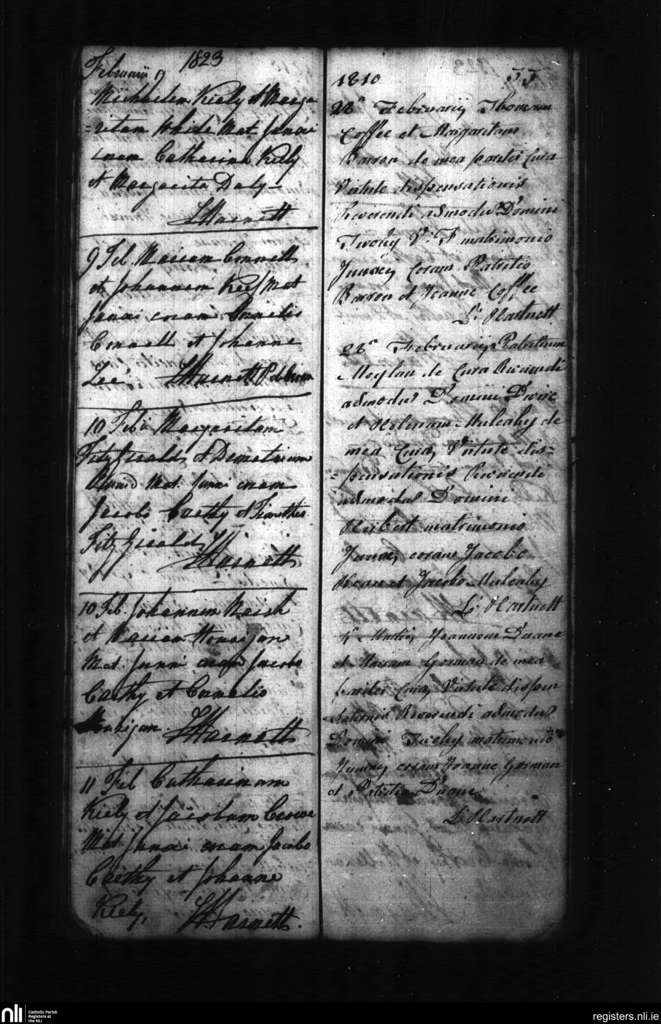 1823
Februarii 9
Michaelem Kiely et Marga
=ritam White Mat. Junxi
coram Catharina Kiely
et Margarita Daly
Harnett
9 Feb Mariam Connell
et Johannem Kiely Mat
junxi coram Cornelio
Connell et Johanne
Lee. Harnett
10 Feb. Margaritam
Fitzgerald et Demetrium
Mat. junxi coram
Jacobo Carthy et Timotheo
Fitzgerald Harnett
10 Feb. Johannem
et Mariam Hourigan
Mat. junxi coram Jacobo
Carthy et Cornelio
Hourigan Harnett
11 Feb Catharinam
Kiely et Jacobum Crowe
Mat junxi coram Jacobo
Carthy et Johanne
Kiely. Harnett.
1810
28ª Februarij Thomam
Coffee et Margaritam
Barron de mea Cura
Virtute dispensationis
Reverendi admodum Domini
Tuohy V. F matrimonio
Junxi Coram Patritio
Barron et Joanne Coffee
Hartnett
28ª Februarij Patritium
de Cura Reverendi
admodum Domini
et Mulcahy de
mea Cura, Virtute dis-
=pensationis Reverendi
admodum Domini
matrimonio
Junxi coram Jacobo
et Jacobo Mulcahy
Hartnett
Joannem Duane
et Gorman de mea
Cura, Virtute dispen
sationis Reverendi admodum
Domini Tuohy matrimonio
Junxi coram Joanne Gorman
et Patritio Duane
Hartnett
nli
Catholic Parish
Registers at
the NLI
registers.nli.ie